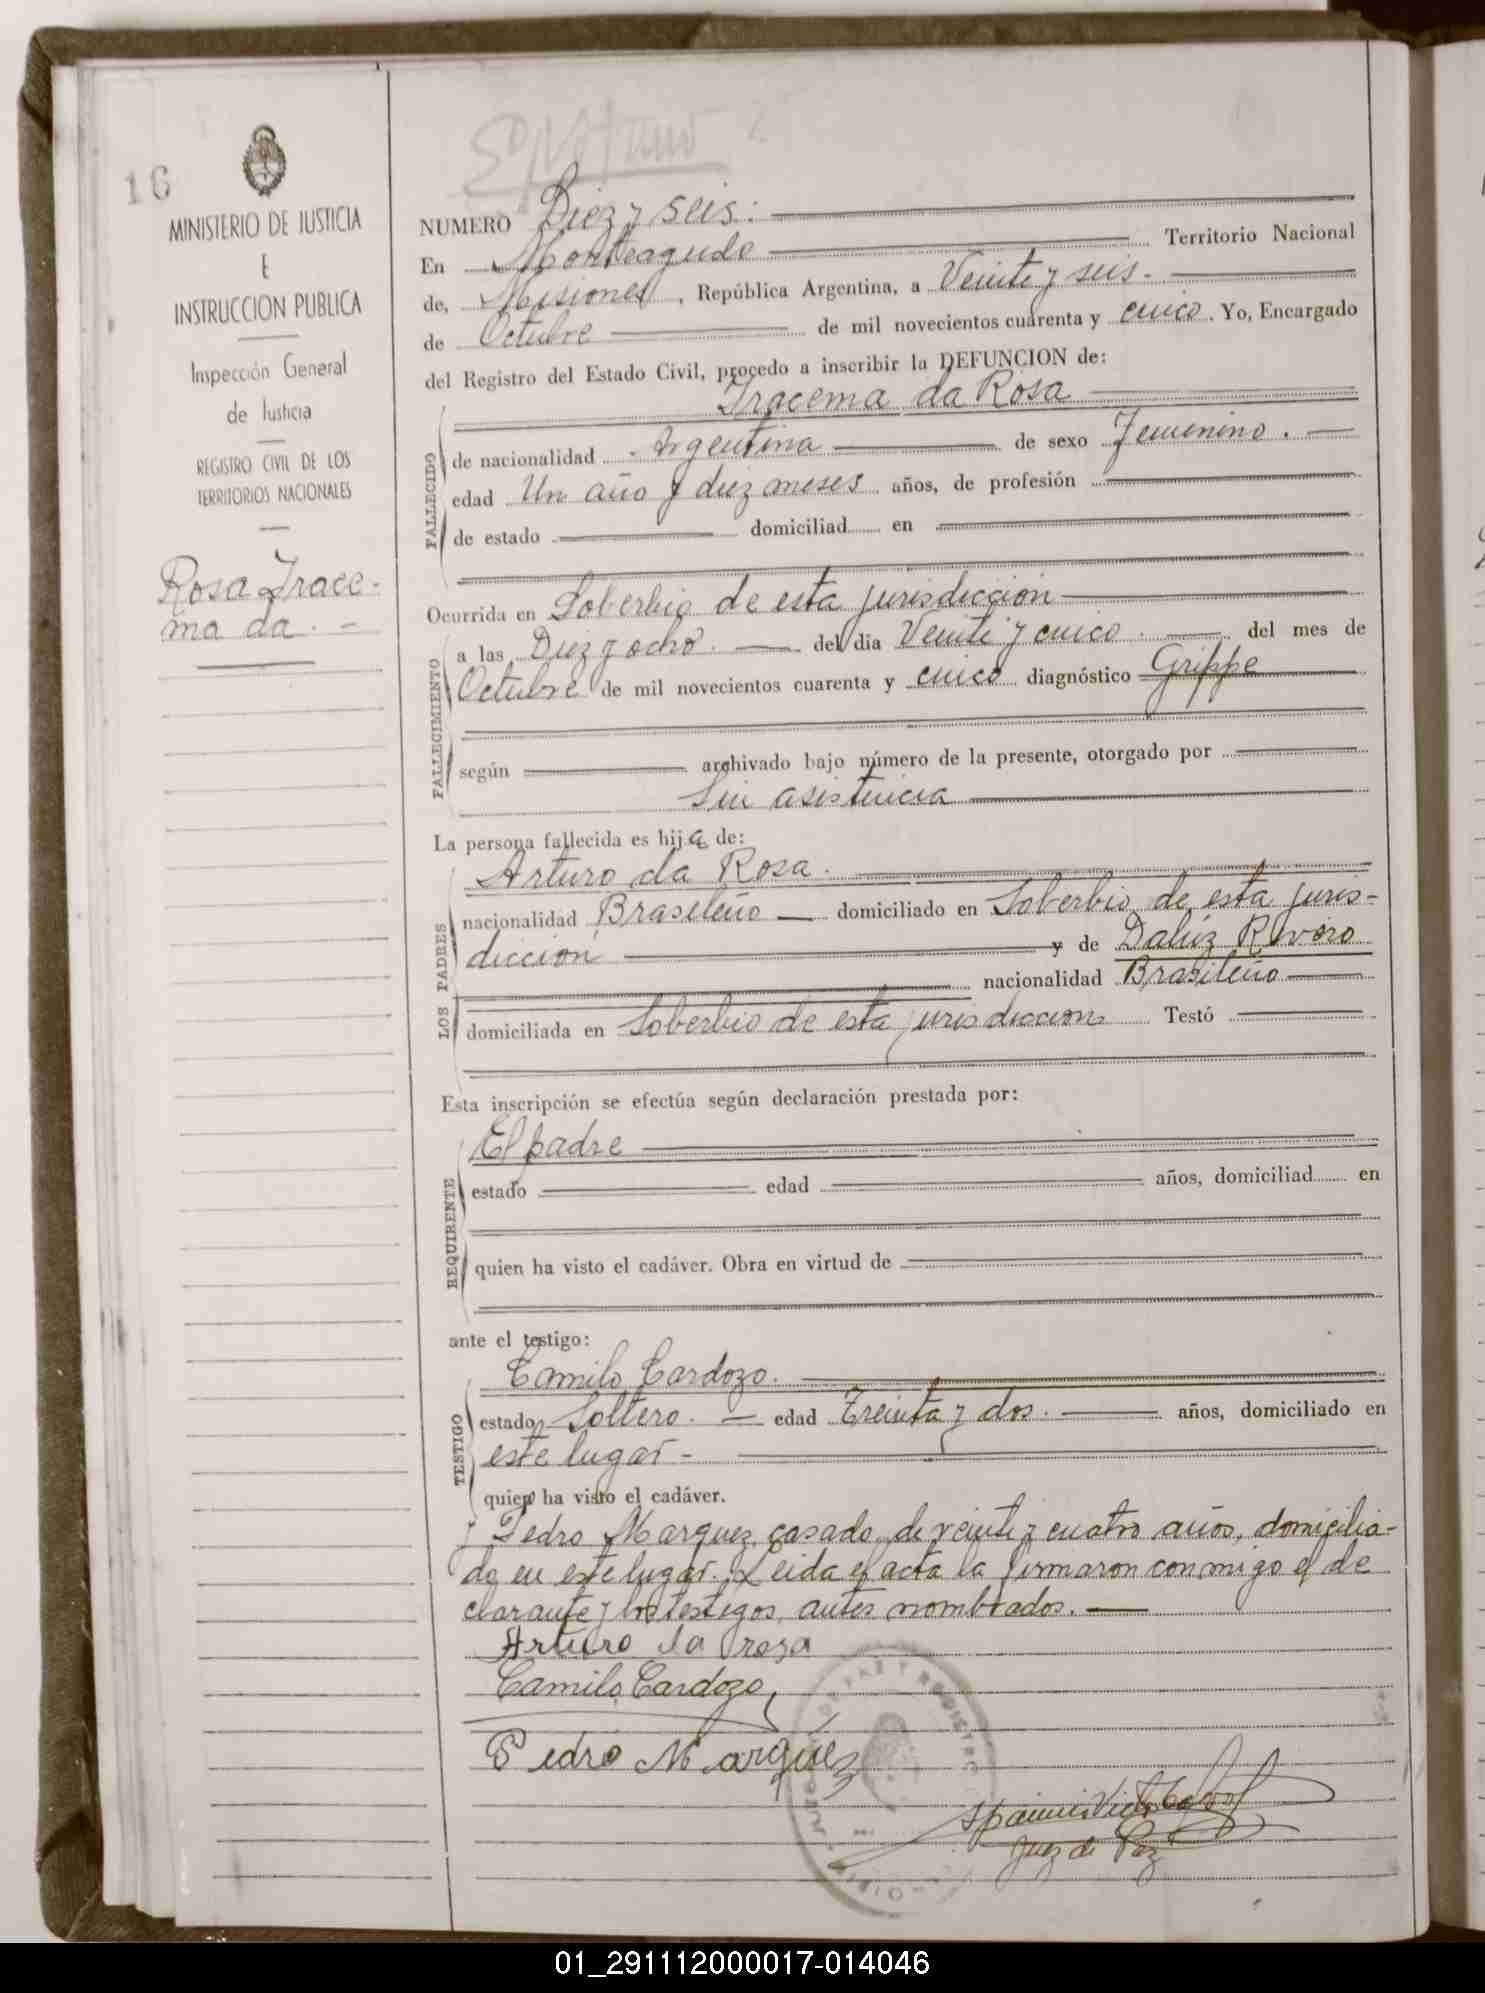 16
MINISTERIO DE JUSTICIA
E
INSTRUCCION PUBLICA
Inspección General
de Justicia
REGISTRO CIVIL DE LOS
TERRITORIOS NACIONALES
Rosa Irace-
ma da. -
NUMERO Diez y seis.
En Monteagudo Territorio Nacional
de, Misiones, República Argentina, a Veinte y seis.
de Octubre de mil novecientos cuarenta y cinco. Yo, Encargado
del Registro del Estado Civil, procedo a inscribir la DEFUNCION de:
Iracema da Rosa
FALLECIDO
de nacionalidad Argentina de sexo Femenino.
edad Un año y diez meses años, de profesión
de estado domiciliad en
Ocurrida en Soberbio de esta jurisdicción
FALLECIMIENTO
a las Diez y ocho. del dia Veinte y cinco. del mes de
Octubre de mil novecientos cuarenta y cinco diagnóstico Grippe
según archivado bajo número de la presente, otorgado por
Sin asistencia
La persona fallecida es hija de:
LOS PADRES
Arturo da Rosa.
nacionalidad Brasileño domiciliado en Soberbio de esta juris-
dicción y de Daluz Rivero
nacionalidad Brasileño
domiciliada en Soberbio de esta jurisdiccion Testó
Esta inscripción se efectúa según declaración prestada por:
REQUIRENTE
El padre
estado edad años, domiciliad en
quien ha visto el cadáver. Obra en virtud de
ante el testigo:
TESTIGO
Camilo Cardozo.
estado Soltero. edad Treinta y dos. años, domiciliado en
este lugar -
quien ha visto el cadáver.
y Pedro Marquez, casado, de veinte y cuatro años, domicilia-
do en este lugar. Leida el acta la firmaron conmigo el de
clarante y los testigos, antes nombrados.
Arturo da rosa
Camilo Cardozo
Pedro Marquez
Juez de Paz
01_291112000017-014046